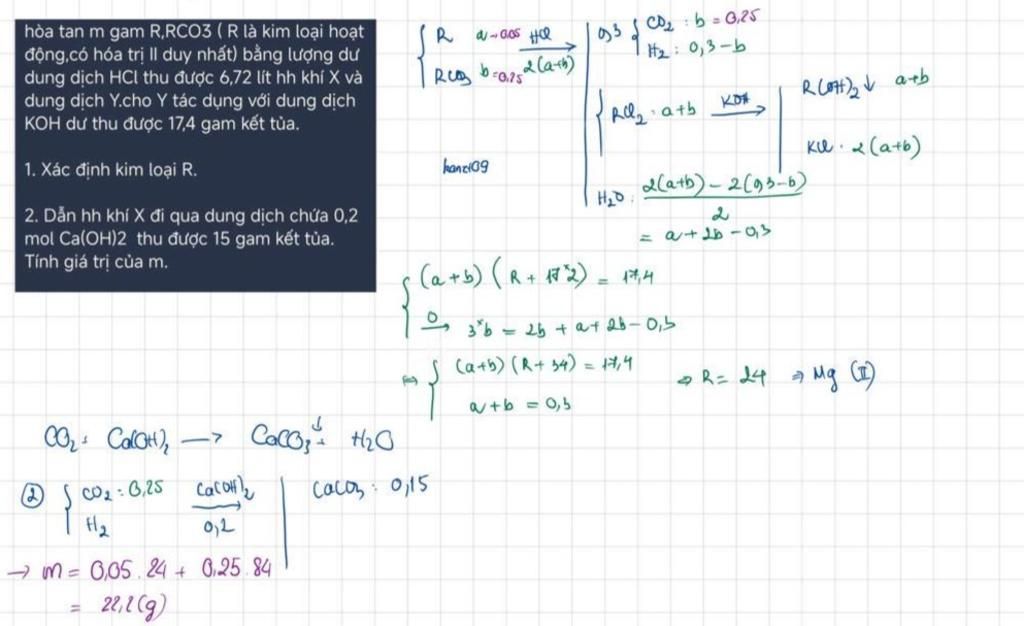 hòa tan m gam R,RCO3 ( R là kim loại hoạt
động,có hóa trị II duy nhất) bằng lượng dư
dung dịch HCl thu được 6,72 lít hh khí X và
dung dịch Y.cho Y tác dụng với dung dịch
KOH dư thu được 17,4 gam kết tủa.
1. Xác định kim loại R.
2. Dẫn hh khí X đi qua dung dịch chứa 0,2
mol Ca(OH)2 thu được 15 gam kết tủa.
Tính giá trị của m.
R a→0.05 HCl
RCO3 b=0.25 2(a+b)
0,3 { CO2 : b = 0,25
H2 : 0,3-b
RCl2 : a+b KOH →
R(OH)2↓ a+b
KCl : 2(a+b)
H2O : 2(a+b) - 2(0,3-b)
2
= a + 2b - 0,3
(a+b) (R + 17×2) = 17,4
O → 3×b = 2b + a + 2b - 0,3
⇔ { (a+b) (R+34) = 17,4
a+b = 0,3
⇒ R = 24 ⇒ Mg (II)
CO2 + Ca(OH)2 → CaCO3↓ + H2O
② { CO2 : 0,25 Ca(OH)2 → CaCO3 : 0,15
H2 0,2
→ m = 0,05 . 24 + 0,25 . 84
= 22,2 (g)